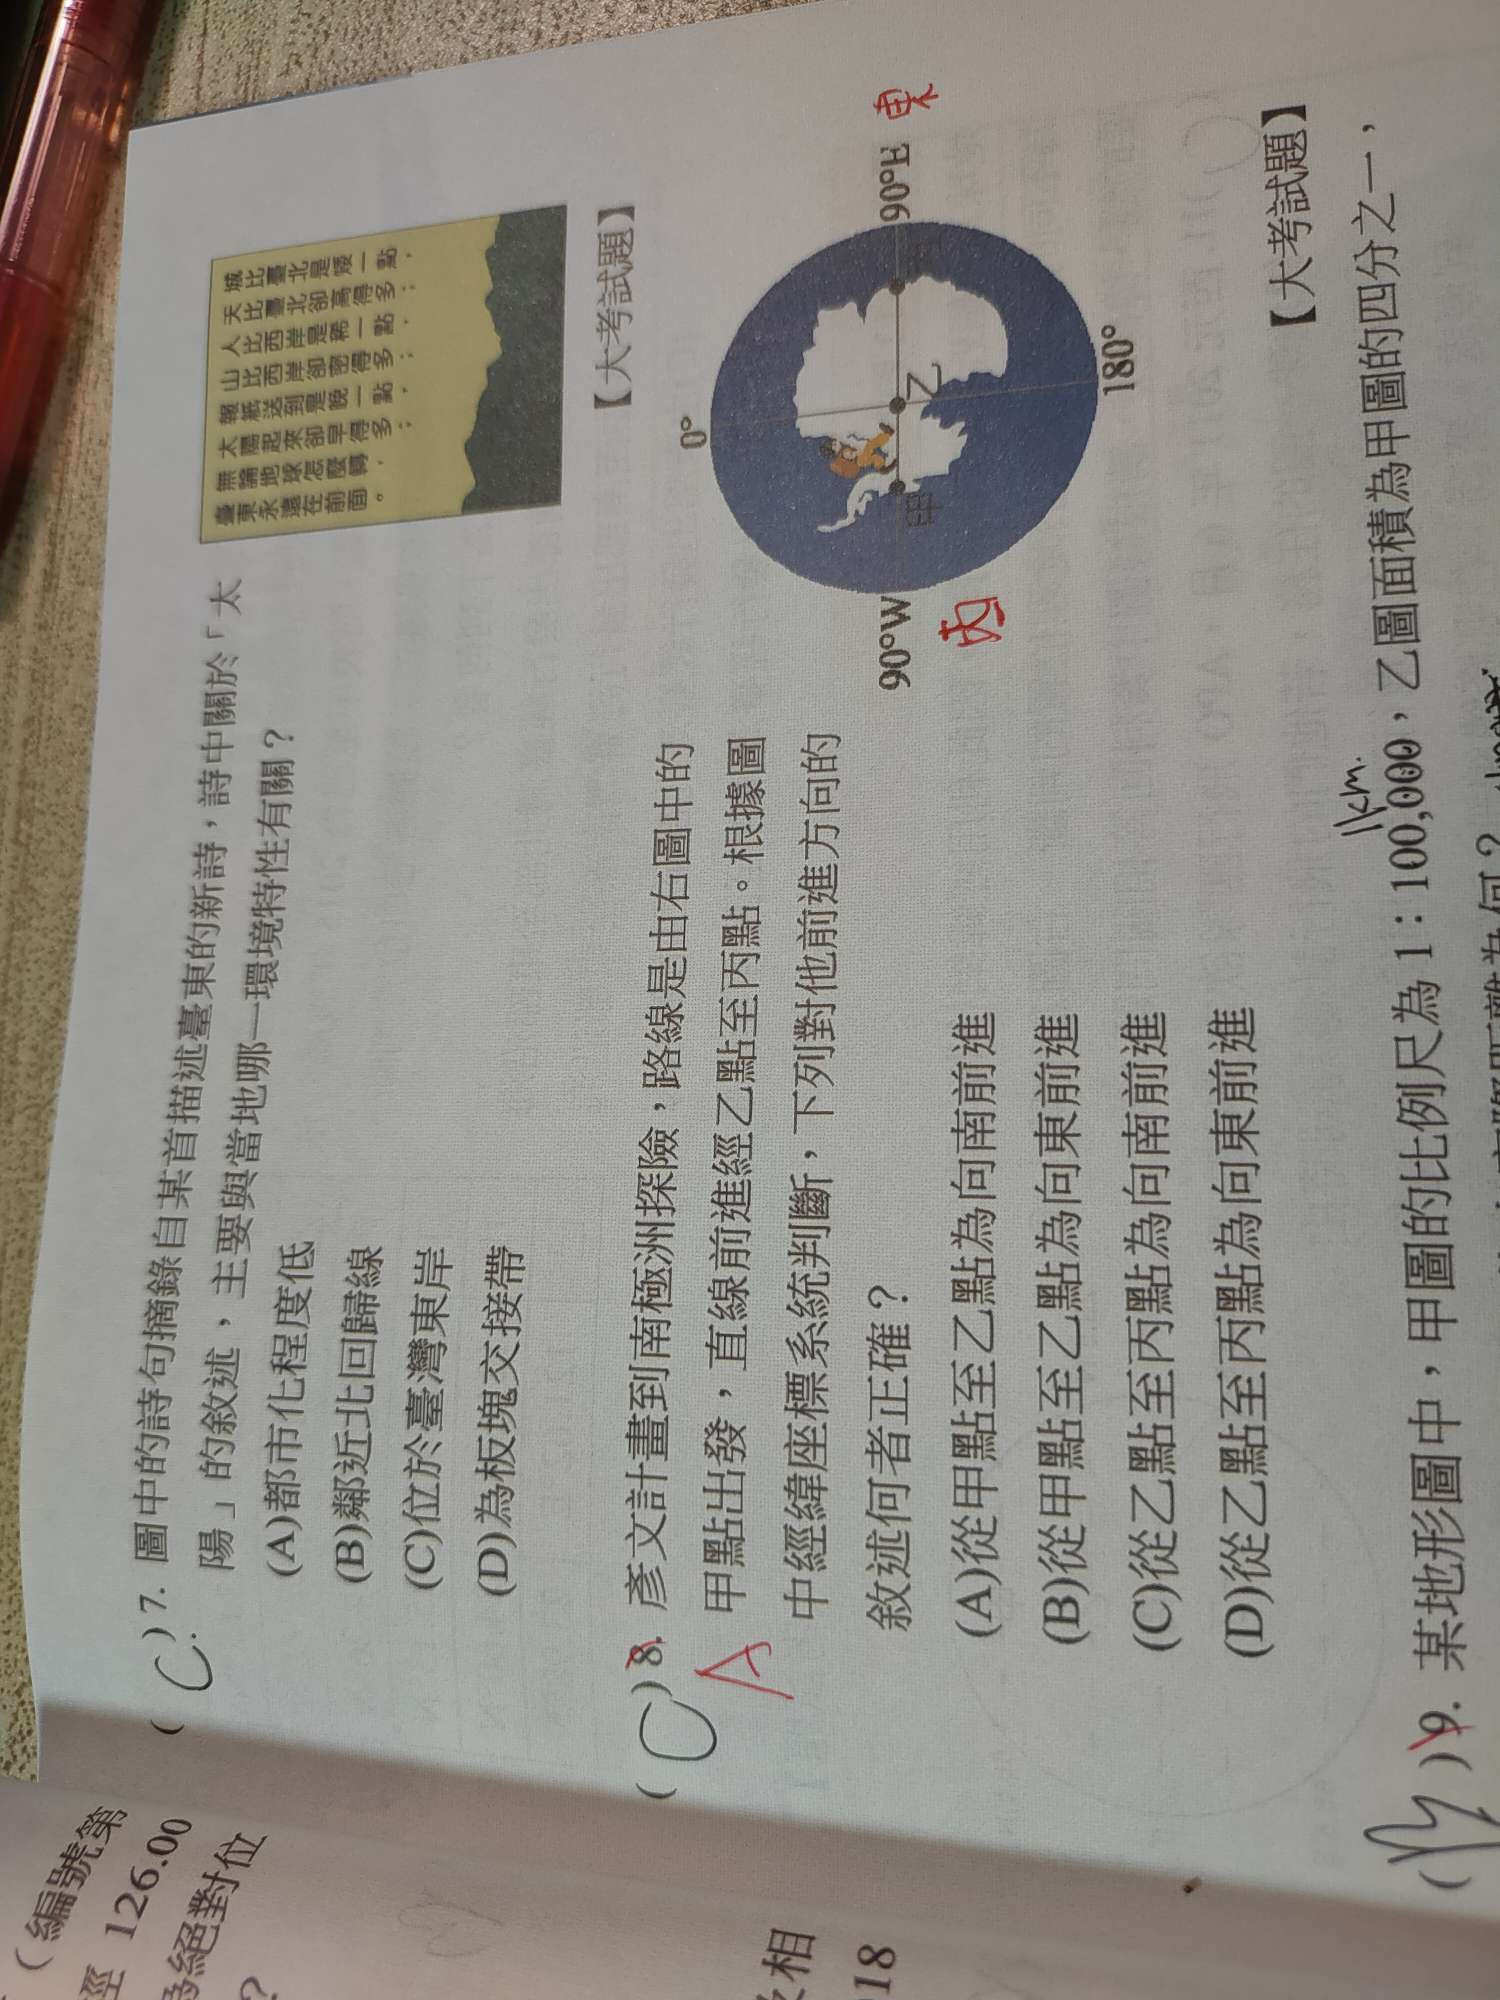 ( C ) 7. 圖中的詩句摘錄自某首描述臺東的新詩，詩中關於「太
陽」的敘述，主要與當地哪一環境特性有關？
(A)都市化程度低
(B)鄰近北回歸線
(C)位於臺灣東岸
(D)為板塊交接帶
城比臺北是矮一點，
天比臺北卻高得多；
人比西岸是稀一點，
山比西岸卻密得多；
報紙送到是晚一點，
太陽起來卻早得多；
無論地球怎麼轉，
臺東永遠在前面。
【大考試題】
( C ) 8. 彥文計畫到南極洲探險，路線是由右圖中的
A
甲點出發，直線前進經乙點至丙點。根據圖
中經緯座標系統判斷，下列對他前進方向的
敘述何者正確？
(A)從甲點至乙點為向南前進
(B)從甲點至乙點為向東前進
(C)從乙點至丙點為向南前進
(D)從乙點至丙點為向東前進
0°
90°W
90°E
180°
甲
乙
丙
東
【大考試題】
) 9. 某地形圖中，甲圖的比例尺為 1：100,000，乙圖面積為甲圖的四分之一，
1km.
（編號第
126.00
絕對位
？
相
18